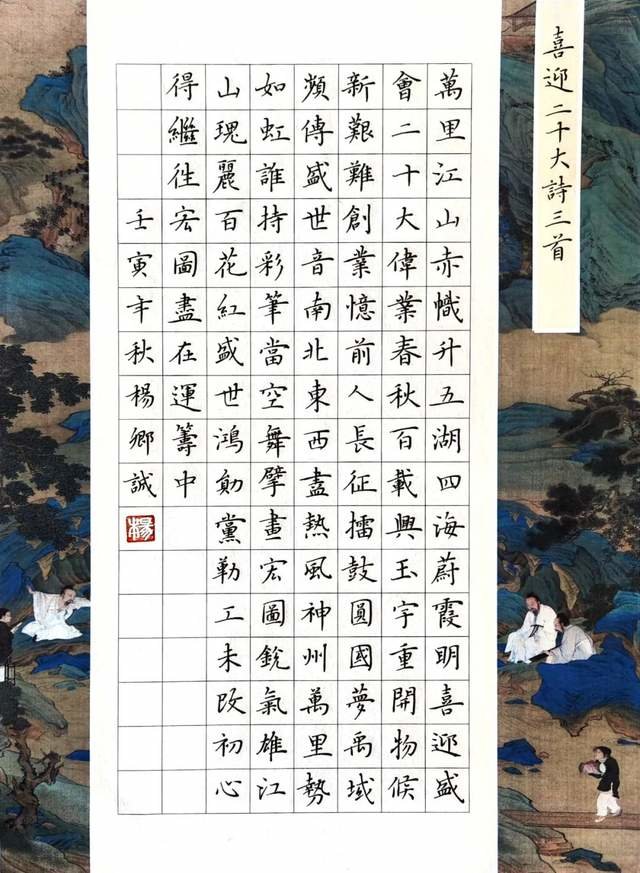 喜迎二十大詩三首
萬里江山赤幟升五湖四海蔚霞明喜迎盛
會二十大偉業春秋百載興玉宇重開物候
新艱難創業憶前人長征擂鼓圓國夢禹域
頻傳盛世音南北東西盡熱風神州萬里勢
如虹誰持彩筆當空舞擘畫宏圖銳氣雄江
山瑰麗百花紅盛世鴻勛黨勒工未改初心
得繼徃宏圖盡在運籌中
壬寅年秋楊鄉誠
楊